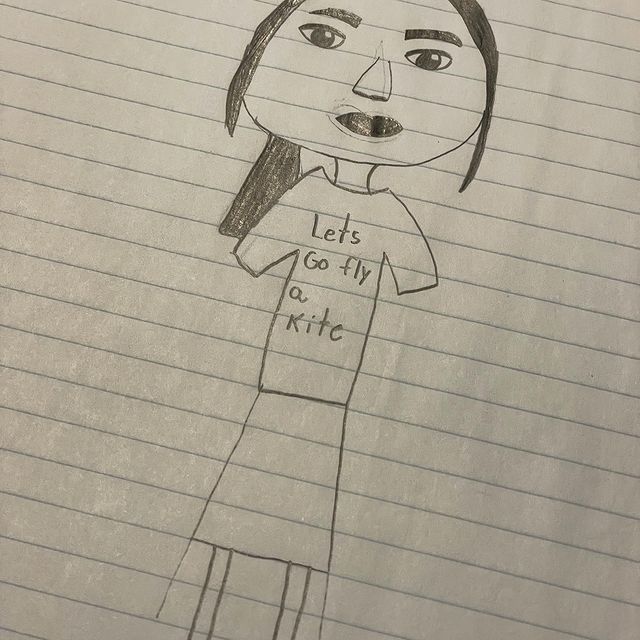 Lets
Go fly
a
Kite